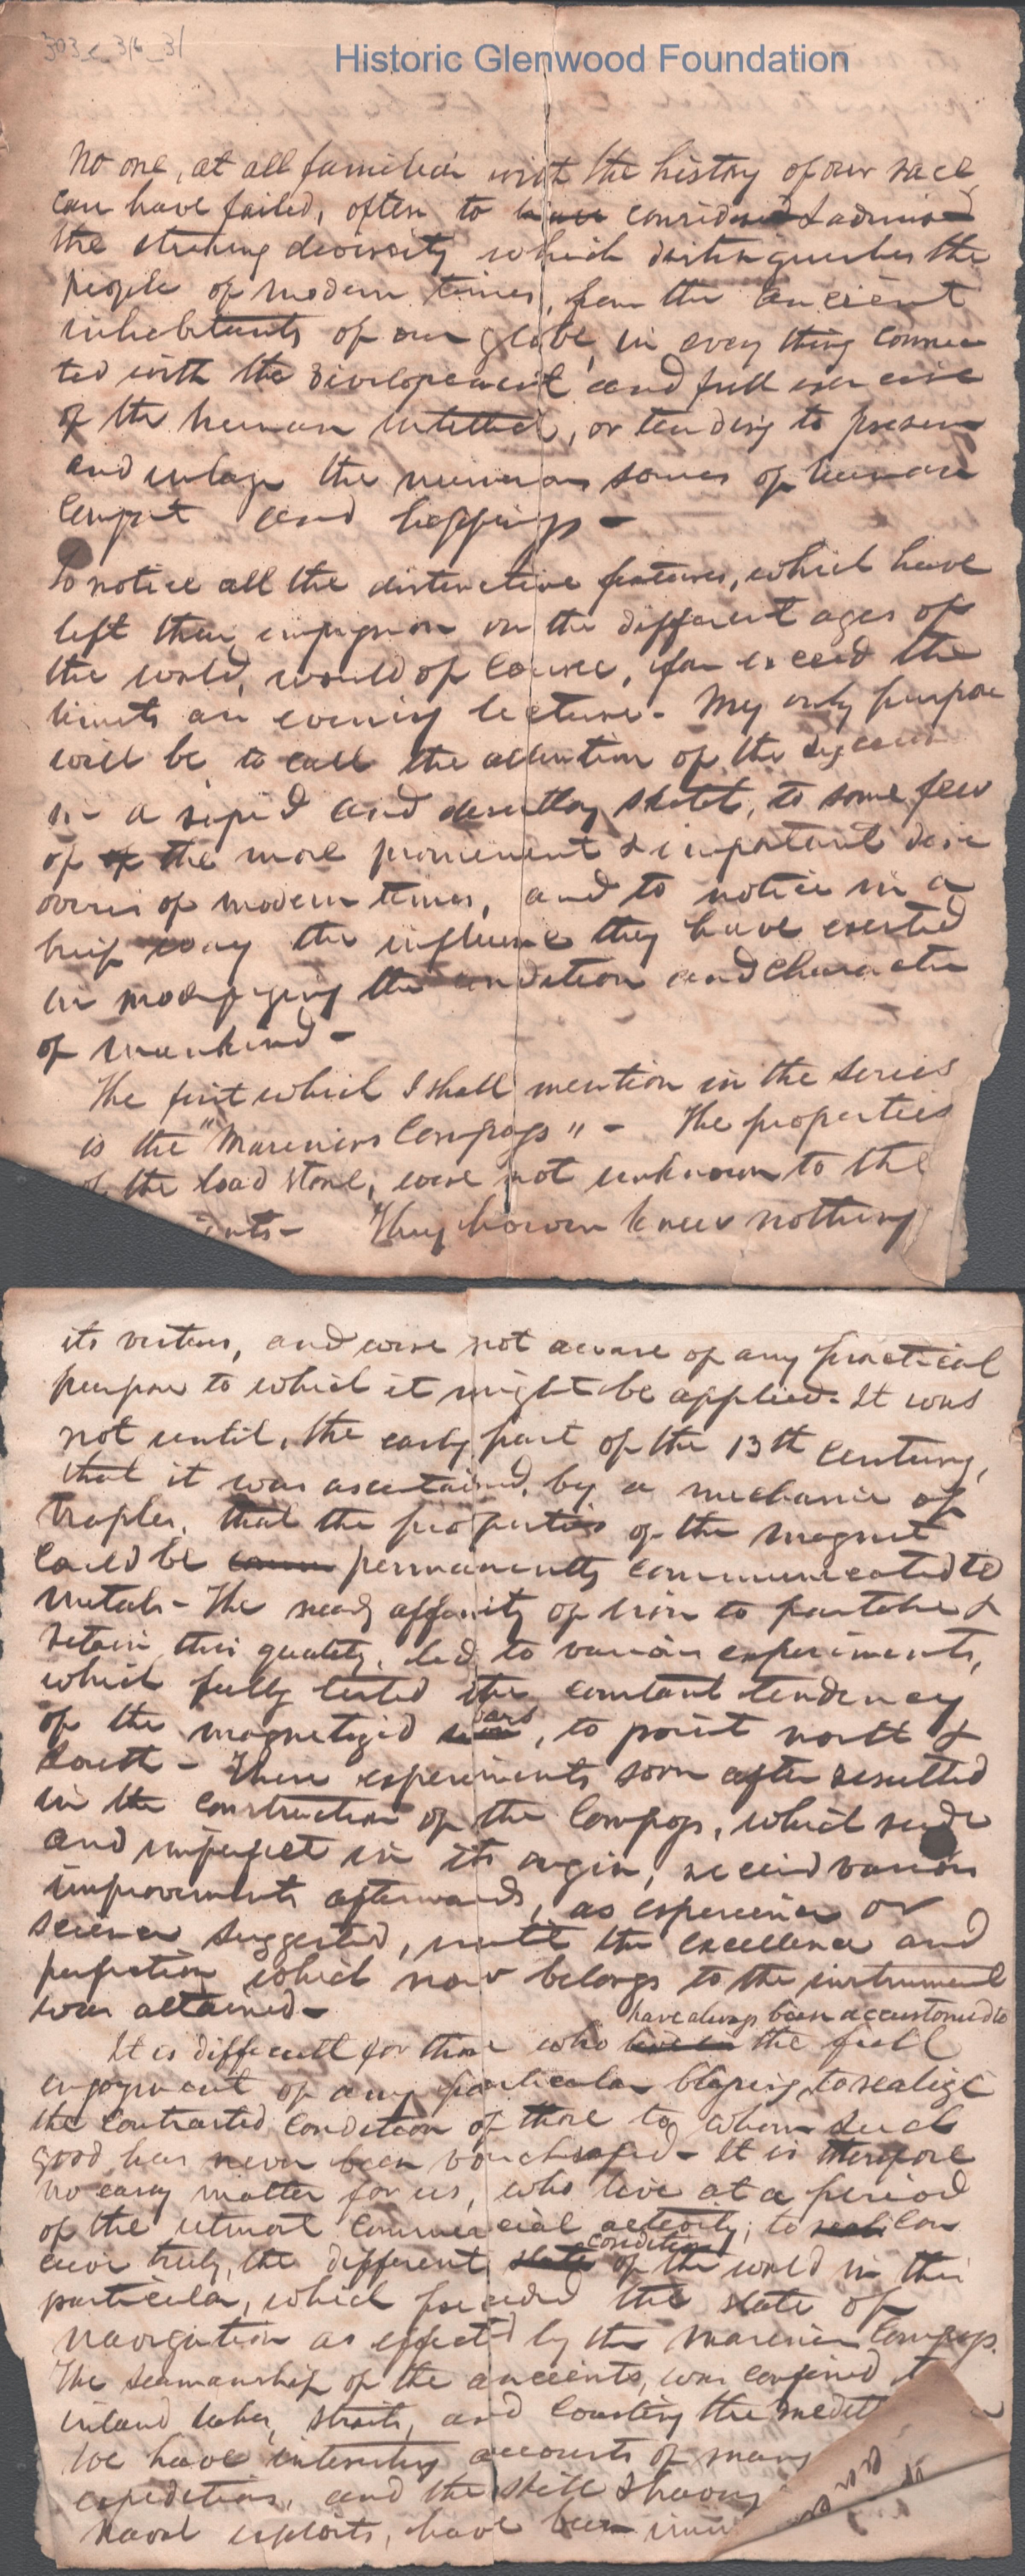 303c_3/6_31
Historic Glenwood Foundation
No one, at all familiar with the history of our race,
can have failed, often to considered & admired
the striking diversity which distinguishes the
people of modern times, from the ancient
inhabitants of our globe, in every thing connec
ted with the developement and full exercise
of the human intellect, or tending to preserve
and enlarge the numerous sources of human
comfort and happiness -
To notice all the distinctive features, which have
left their impression on the different ages of
the world, would of course, far exceed the
limits an evening lecture - My only purpose
will be to call the attention of the Lyceum
in a rapid and desultory sketch, to some few
of of the more prominent & important disc
overies of modern times, and to notice in a
brief way the influence they have exerted
in modifying the condition and character
of mankind -
The first which I shall mention in the series
is the "Mariners Compass" - The properties
of the load stone, were not unknown to the
They however knew nothing
its virtues, and were not aware of any practical
purpose to which it might be applied. It was
not until, the early part of the 13th century,
that it was ascertained, by a mechanic of
Naples, that the properties of the magnet
could be permanently communicated to
metals - The ready affinity of iron to partake &
retain this quality, led to various experiments,
which fully tested the constant tendency
of the magnetized bars, to point north &
South - These experiments soon after resulted
in the construction of the Compass, which rude
and imperfect in its origin, received various
improvements afterwards, as experience or
science suggested, until the excellence and
perfection which now belongs to the instrument
was attained -
have always been accustomed to
It is difficult for those who live in the full
enjoyment of any particular blessing, to realize
the contrasted condition of those to whom such
good has never been vouchsafed - It is therefore
no easy matter for us, who live at a period
of the utmost commercial activity; to real con
condition
ceive truly, the different state of the world in this
particular, which preceded the state of
navigation as effected by the Mariners Compass.
The seamanship of the ancients, was confined
inland lakes, straits, and coasting the
We have interesting accounts of many
expeditions, and the skill & bravery
naval exploits, have been